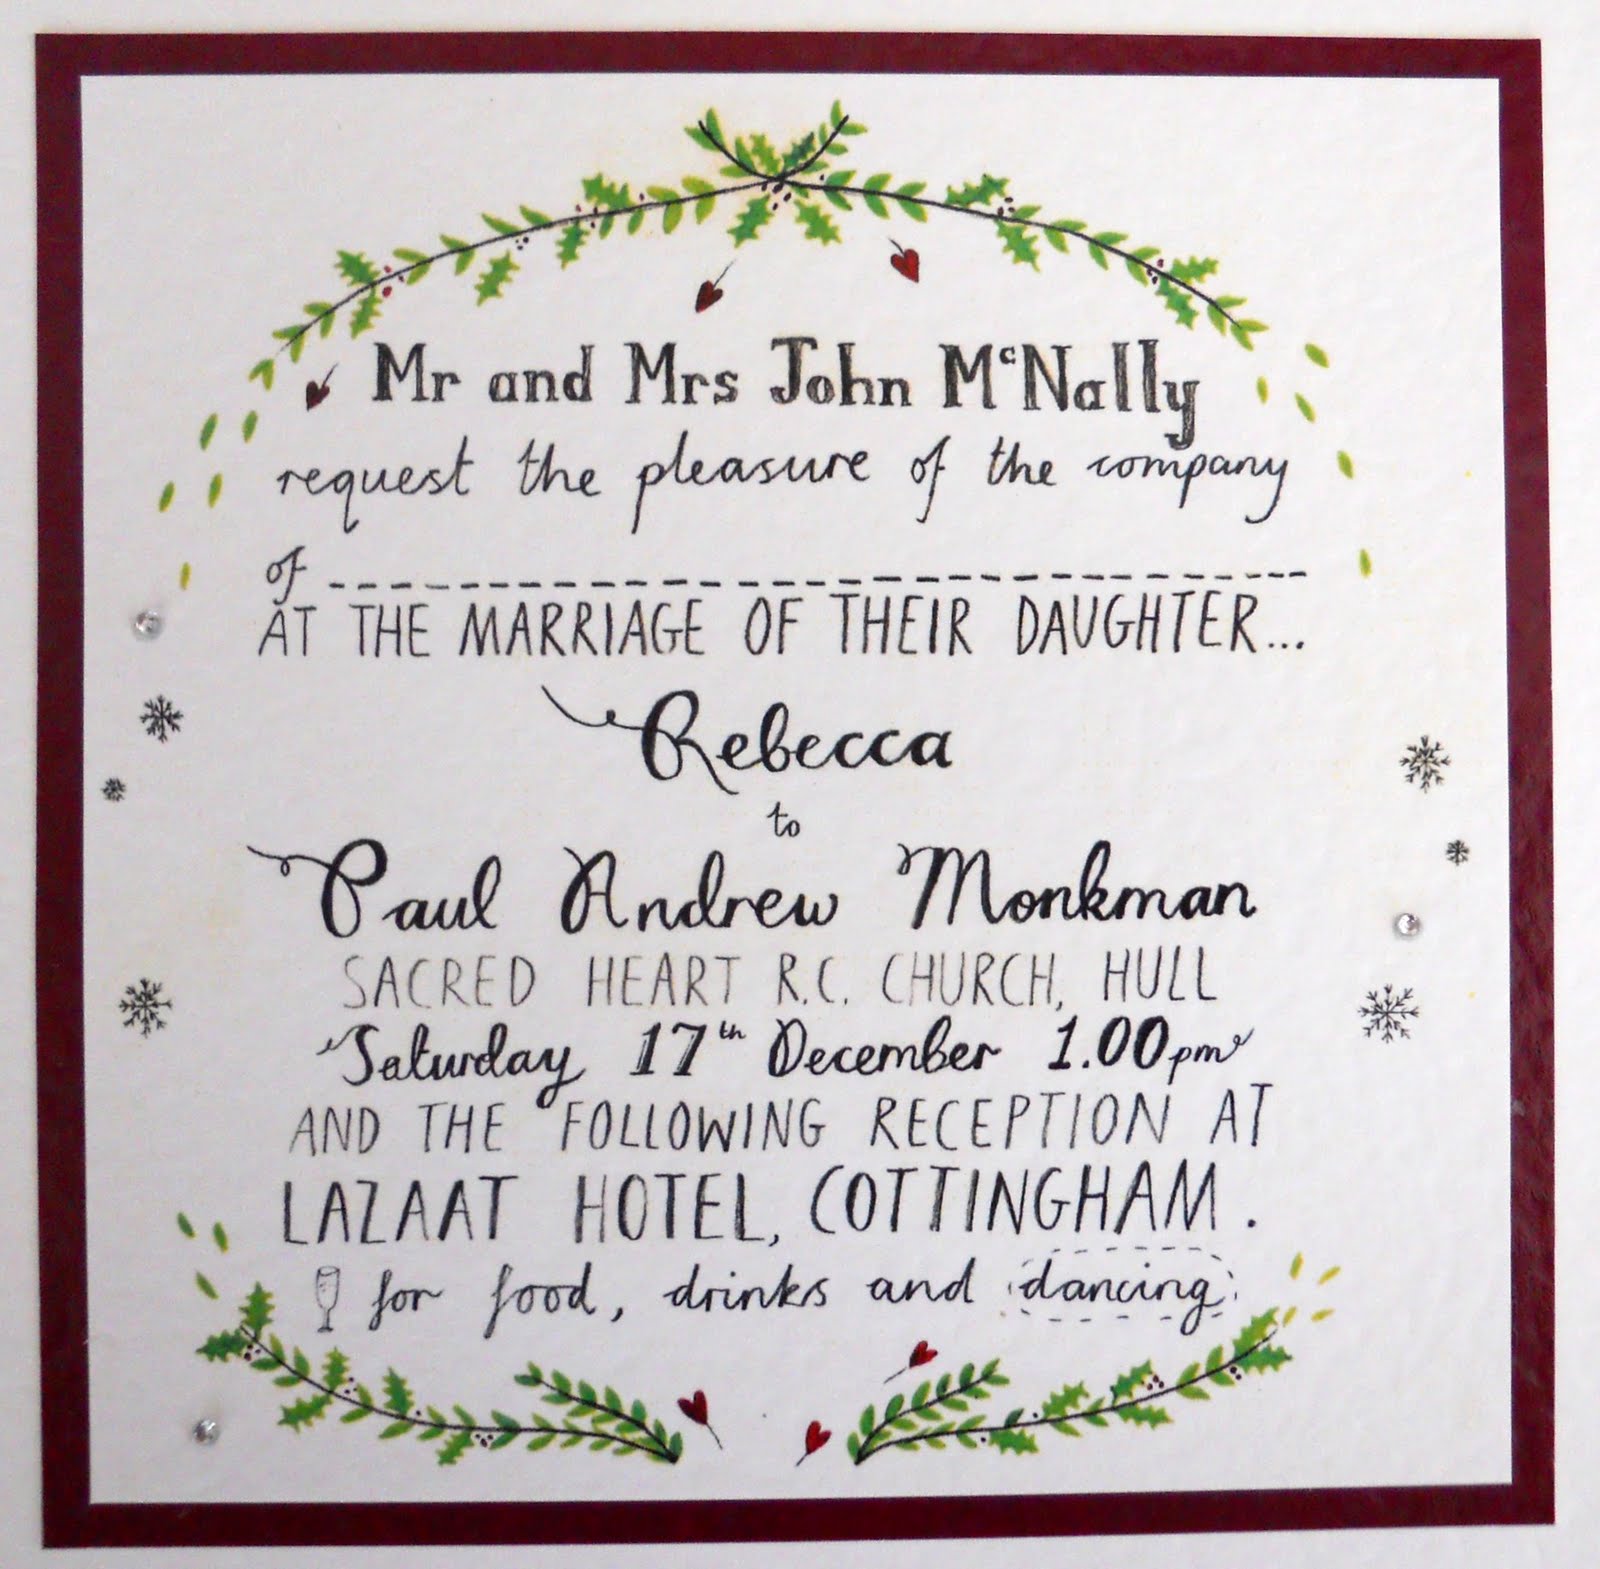 Mr and Mrs John McNally
request the pleasure of the company
of
AT THE MARRIAGE OF THEIR DAUGHTER...
Rebecca
to
Paul Andrew Monkman
SACRED HEART R.C. CHURCH, HULL
Saturday 17th December 1.00pm
AND THE FOLLOWING RECEPTION AT
LAZAAT HOTEL, COTTINGHAM.
for food, drinks and dancing